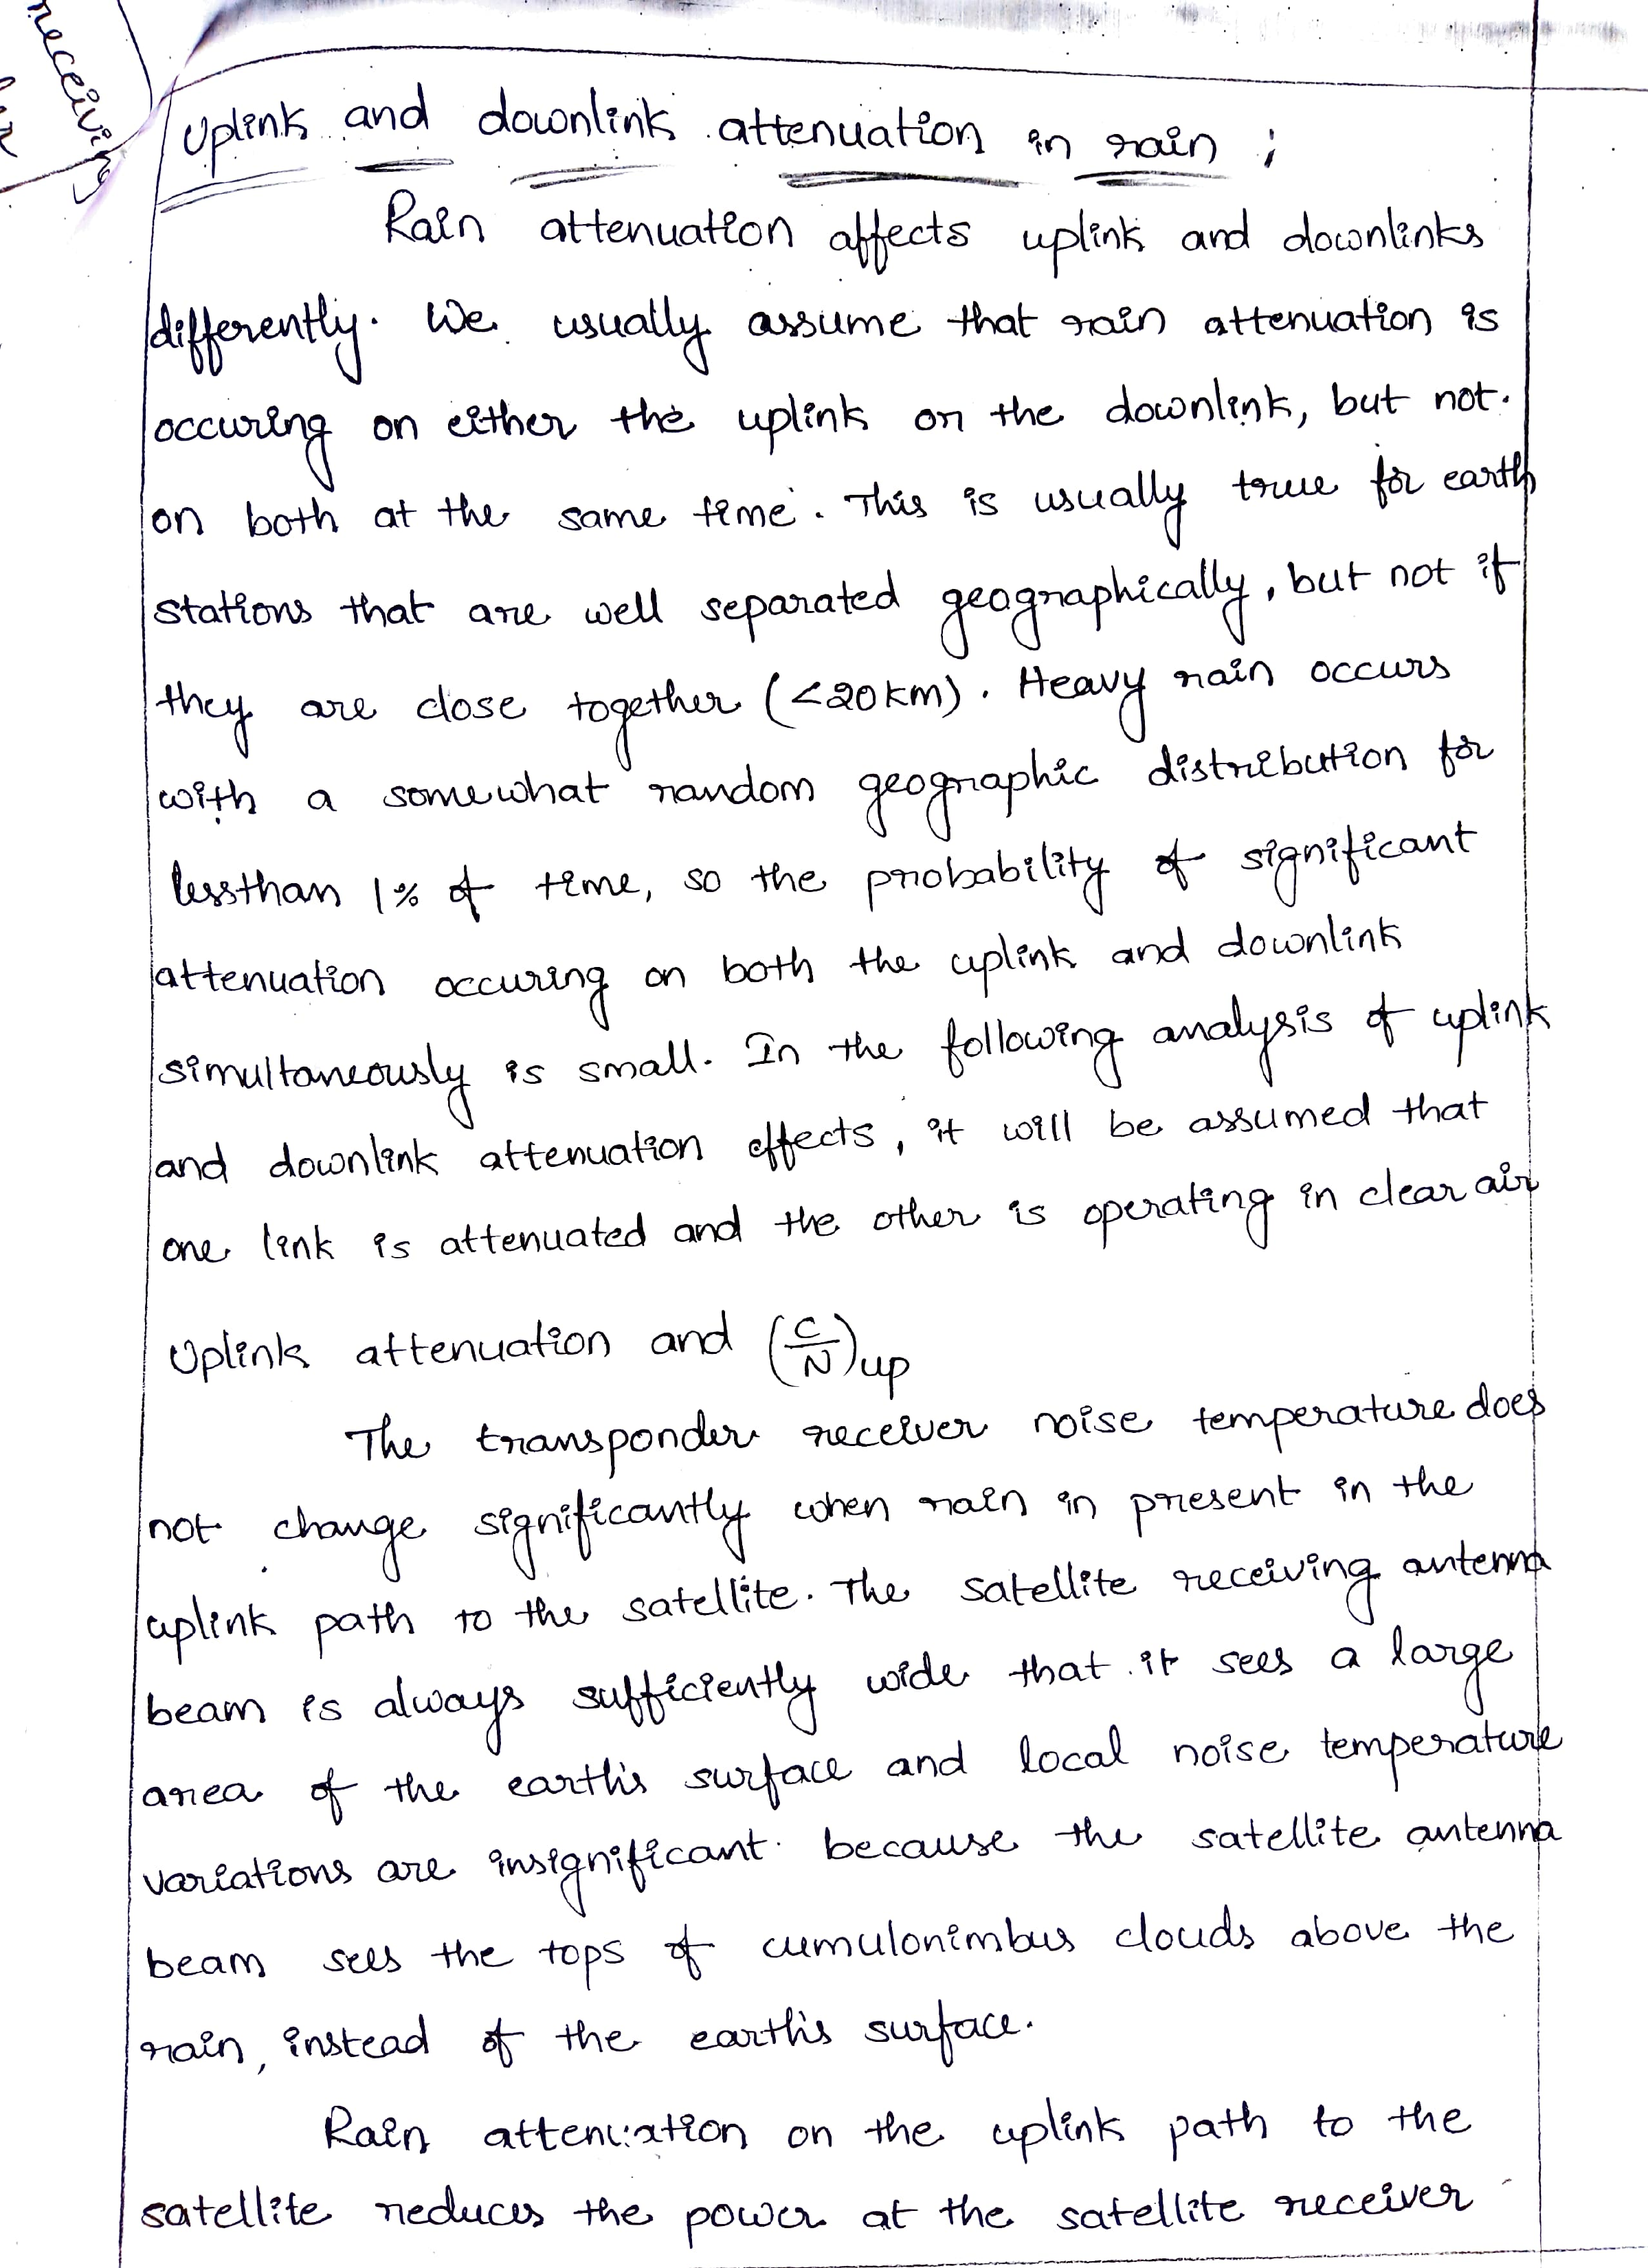 receiving
Uplink and downlink attenuation in rain ;
Rain attenuation affects uplink and downlinks
differently. We usually assume that rain attenuation is
occuring on either the uplink or the downlink, but not.
on both at the same time. This is usually true for earth
stations that are well separated geographically, but not if
they are close together (<20km). Heavy rain occurs
with a somewhat random geographic distribution for
lessthan 1% of time, so the probability of significant
attenuation occuring on both the uplink and downlink
simultaneously is small. In the following analysis of uplink
and downlink attenuation effects, it will be assumed that
one link is attenuated and the other is operating in clear air
Uplink attenuation and (C/N)up
The transponder receiver noise temperature does
not change significantly when rain in present in the
uplink path to the satellite. The satellite receiving antenna
beam is always sufficiently wide that it sees a large
area of the earth's surface and local noise temperature
variations are insignificant. because the satellite antenna
beam sees the tops of cumulonimbus clouds above the
rain, instead of the earth's surface.
Rain attenuation on the uplink path to the
satellite reduces the power at the satellite receiver